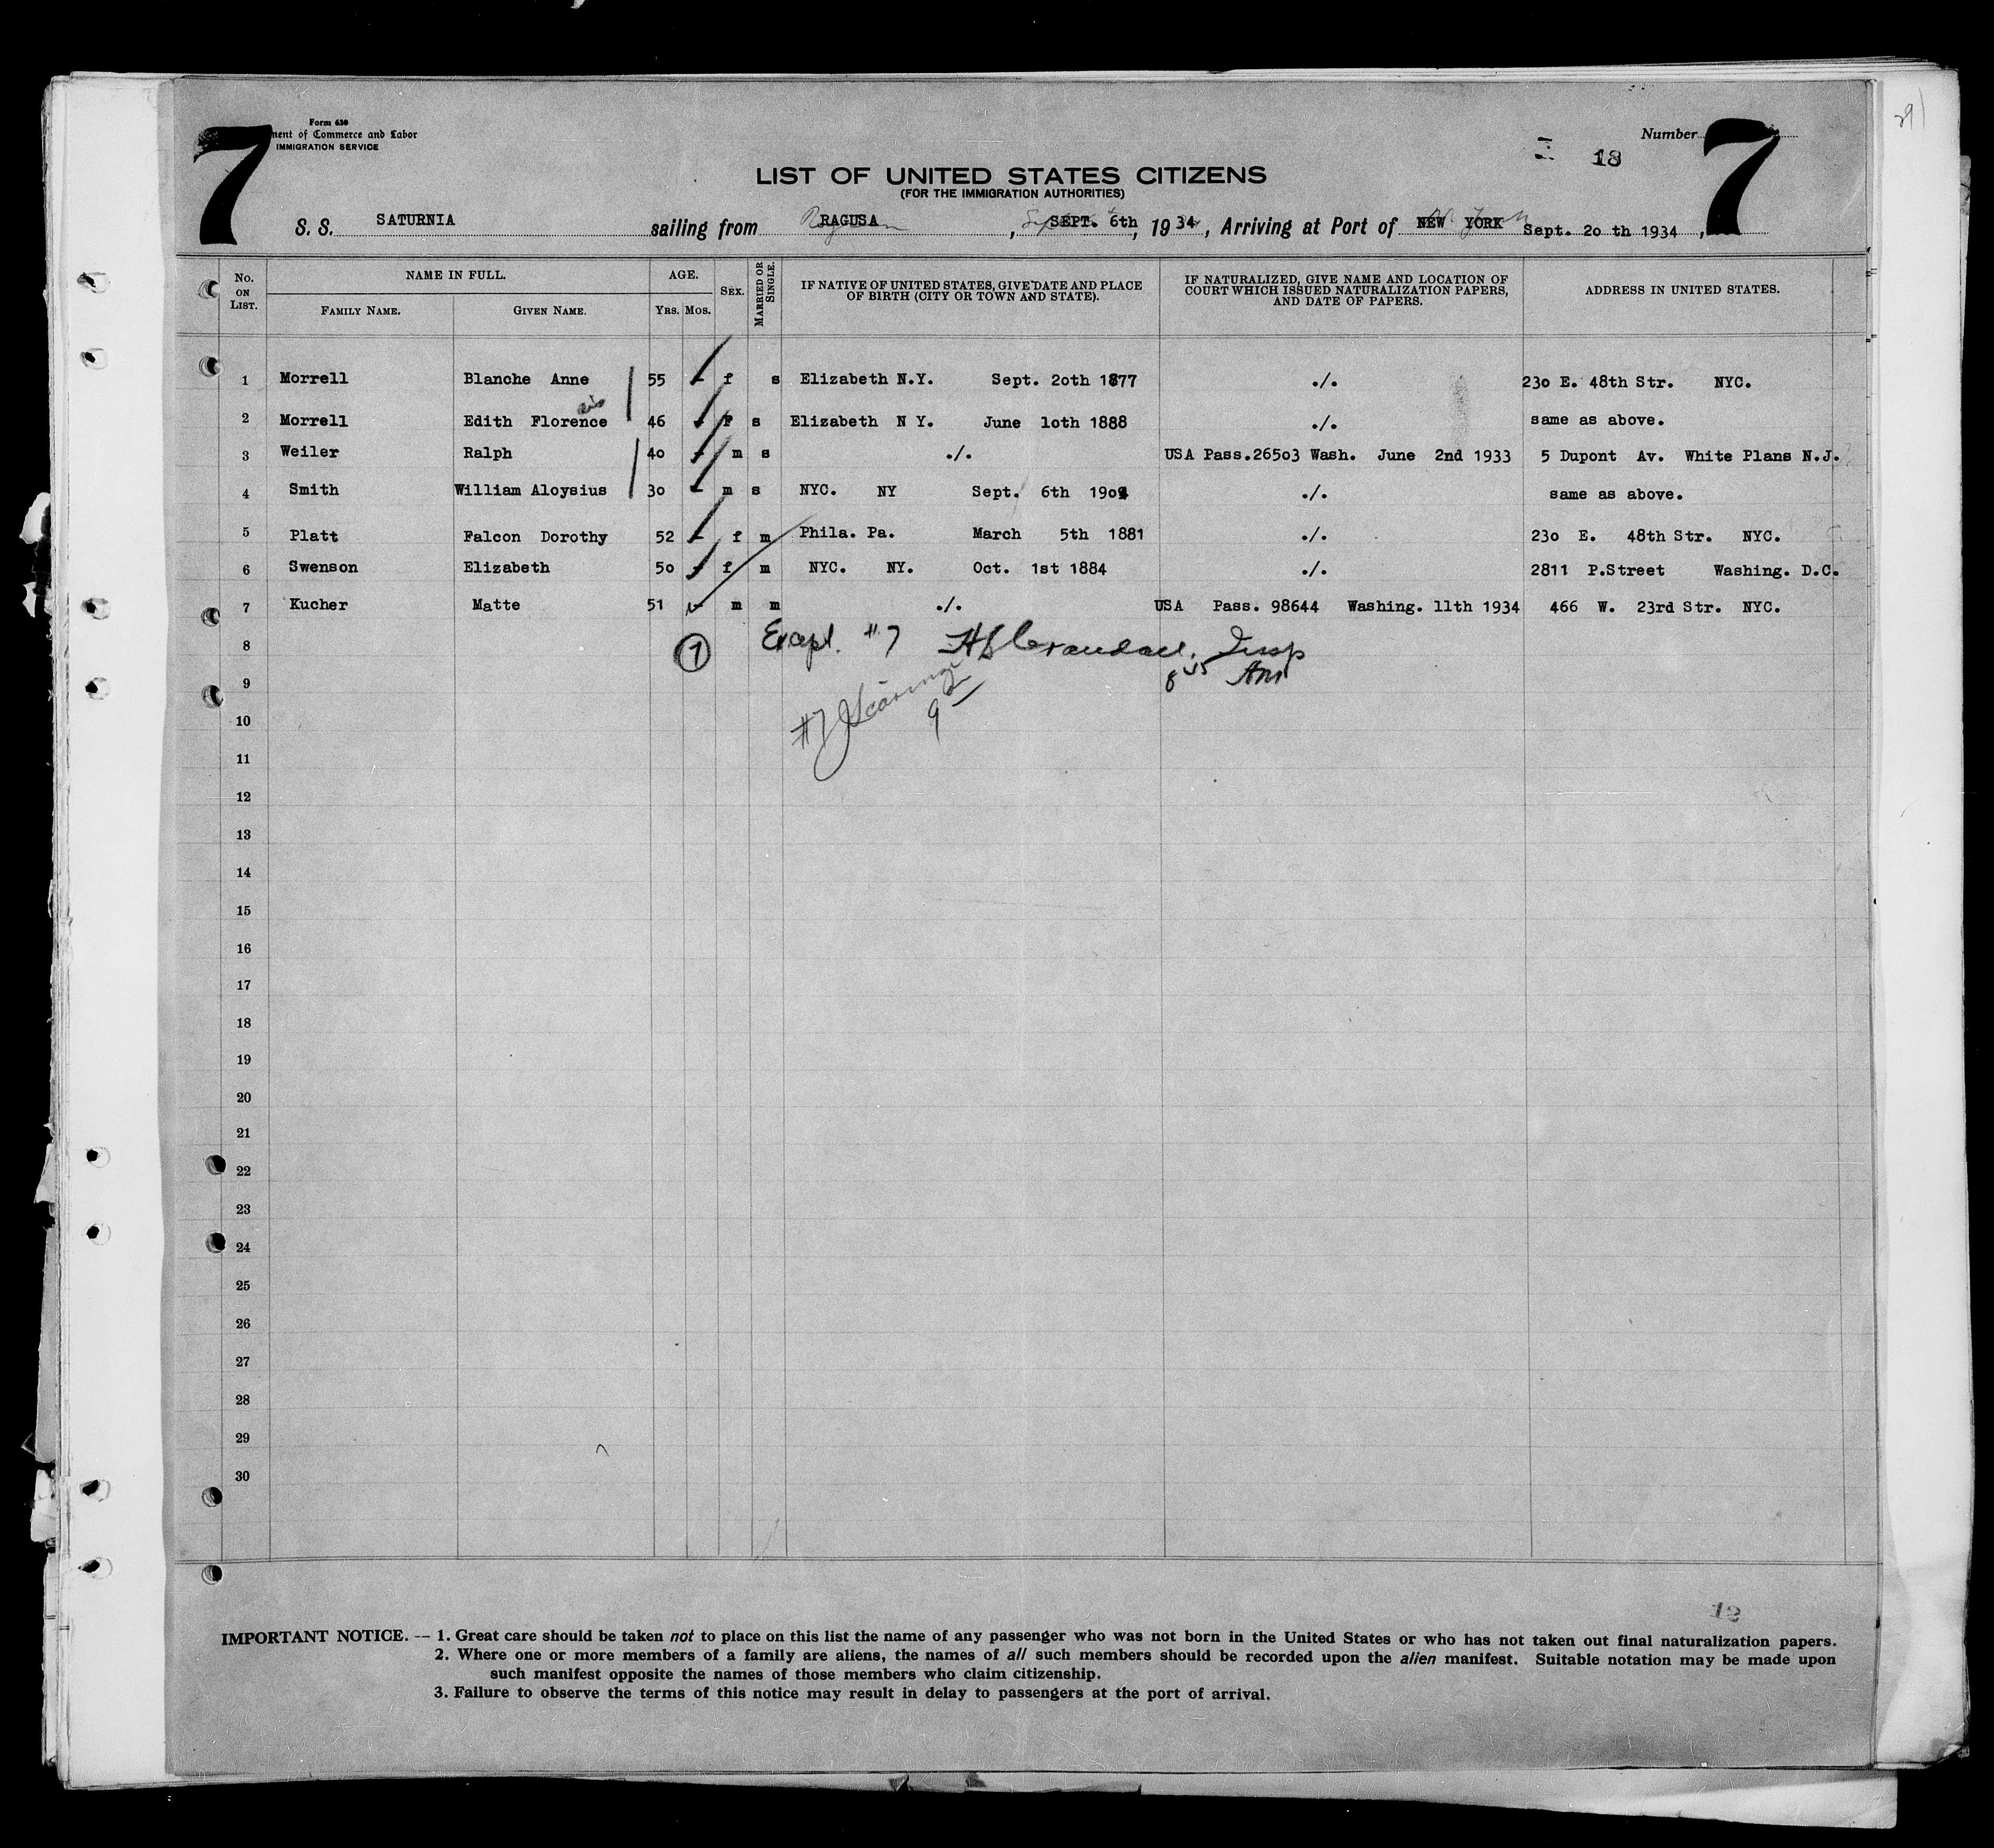 7
Form 630
ment of Commerce and Labor
IMMIGRATION SERVICE
Number 7
18
LIST OF UNITED STATES CITIZENS
(FOR THE IMMIGRATION AUTHORITIES)
S. S. SATURNIA sailing from RAGUSA, SEPT. 6th, 1934, Arriving at Port of NEW YORK Sept. 2o th 1934,
No. ON LIST.
NAME IN FULL.
FAMILY NAME. GIVEN NAME.
AGE.
YRS. MOS.
SEX.
MARRIED OR SINGLE.
IF NATIVE OF UNITED STATES, GIVE DATE AND PLACE
OF BIRTH (CITY OR TOWN AND STATE).
IF NATURALIZED, GIVE NAME AND LOCATION OF
COURT WHICH ISSUED NATURALIZATION PAPERS,
AND DATE OF PAPERS.
ADDRESS IN UNITED STATES.
1 Morrell Blanche Anne 55 - f s Elizabeth N.Y. Sept. 2oth 1877 ./. 23o E. 48th Str. NYC.
2 Morrell Edith Florence 46 - f s Elizabeth N Y. June 1oth 1888 ./. same as above.
3 Weiler Ralph 4o - m s ./. USA Pass.265o3 Wash. June 2nd 1933 5 Dupont Av. White Plans N.J.
4 Smith William Aloysius 3o - m s NYC. NY Sept. 6th 19o4 ./. same as above.
5 Platt Falcon Dorothy 52 - f m Phila. Pa. March 5th 1881 ./. 23o E. 48th Str. NYC.
6 Swenson Elizabeth 5o - f m NYC. NY. Oct. 1st 1884 ./. 2811 P.Street Washing. D.C.
7 Kucher Matte 51 - m m ./. USA Pass. 98644 Washing. 11th 1934 466 W. 23rd Str. NYC.
8 7 Except #7 Insp
9
#7
10
11
12
13
14
15
16
17
18
19
20
21
22
23
24
25
26
27
28
29
30
IMPORTANT NOTICE. -- 1. Great care should be taken not to place on this list the name of any passenger who was not born in the United States or who has not taken out final naturalization papers.
2. Where one or more members of a family are aliens, the names of all such members should be recorded upon the alien manifest. Suitable notation may be made upon
such manifest opposite the names of those members who claim citizenship.
3. Failure to observe the terms of this notice may result in delay to passengers at the port of arrival.